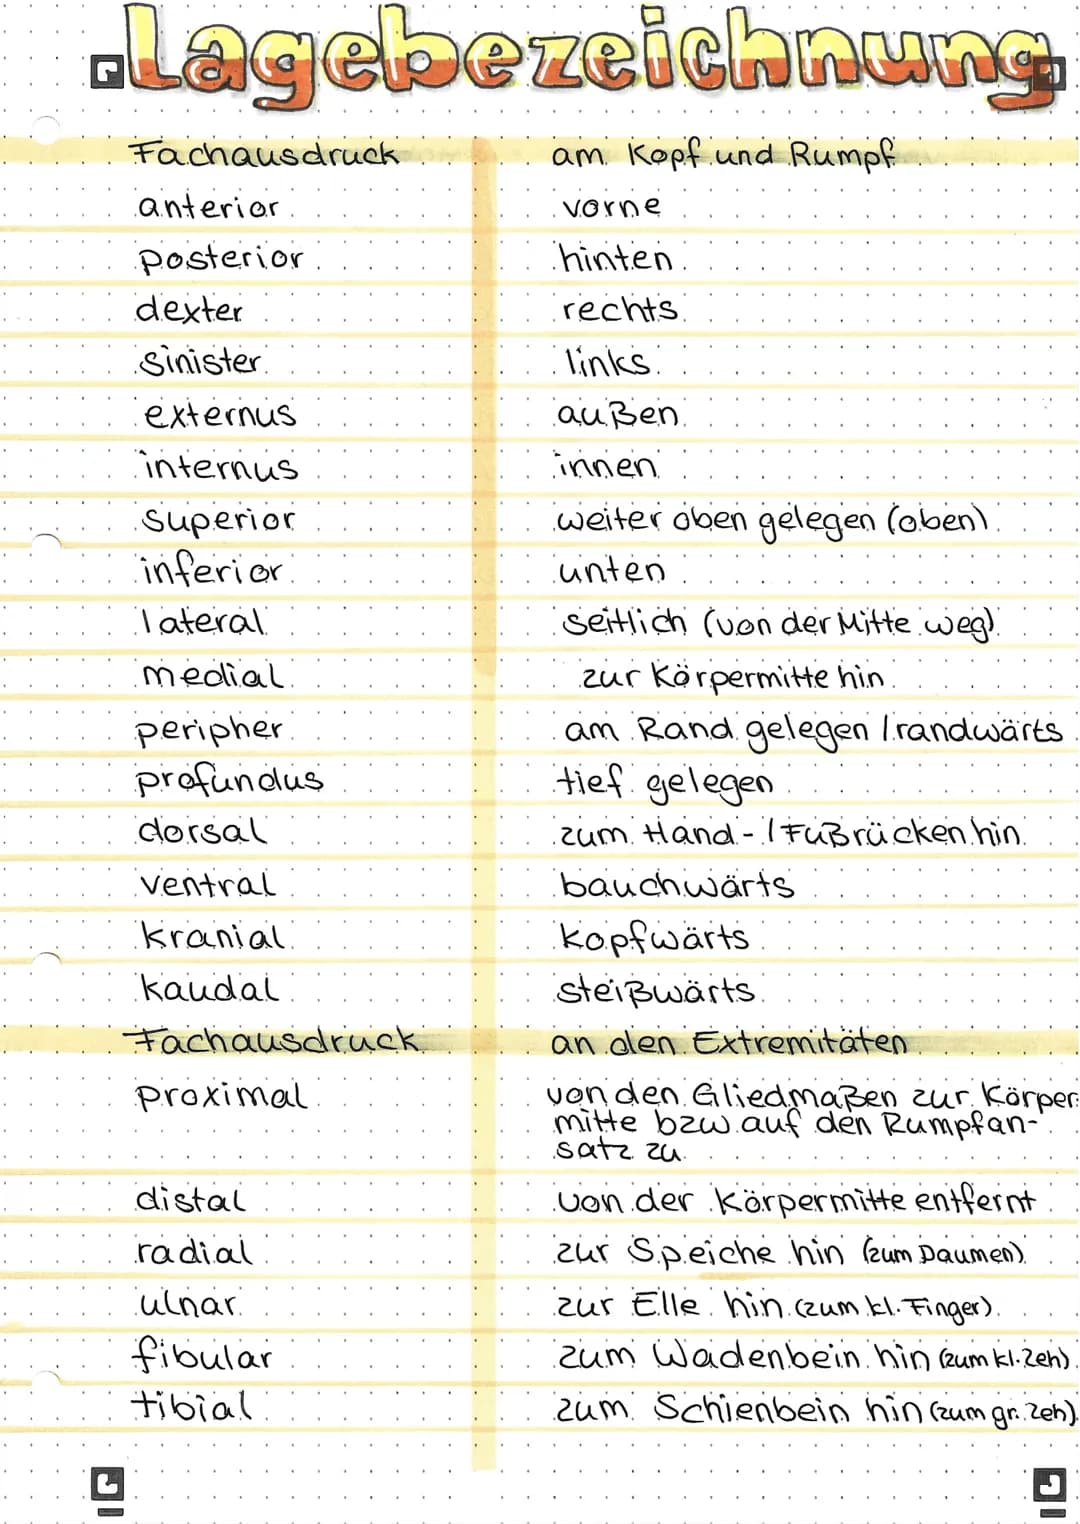 Lagebezeichnung
Fachausdruck am Kopf und Rumpf
anterior vorne
posterior hinten
dexter rechts
sinister links
externus außen
internus innen
superior weiter oben gelegen (oben)
inferior unten
lateral seitlich (von der Mitte weg)
medial zur Körpermitte hin
peripher am Rand gelegen / randwärts
profundus tief gelegen
dorsal zum Hand- / Fußrücken hin
ventral bauchwärts
kranial kopfwärts
kaudal steißwärts
Fachausdruck an den Extremitäten
proximal von den Gliedmaßen zur Körper
mitte bzw auf den Rumpfan-
satz zu
distal von der Körpermitte entfernt
radial zur Speiche hin (zum Daumen)
ulnar zur Elle hin (zum kl. Finger)
fibular zum Wadenbein hin (zum kl. Zeh)
tibial zum Schienbein hin (zum gr. Zeh)